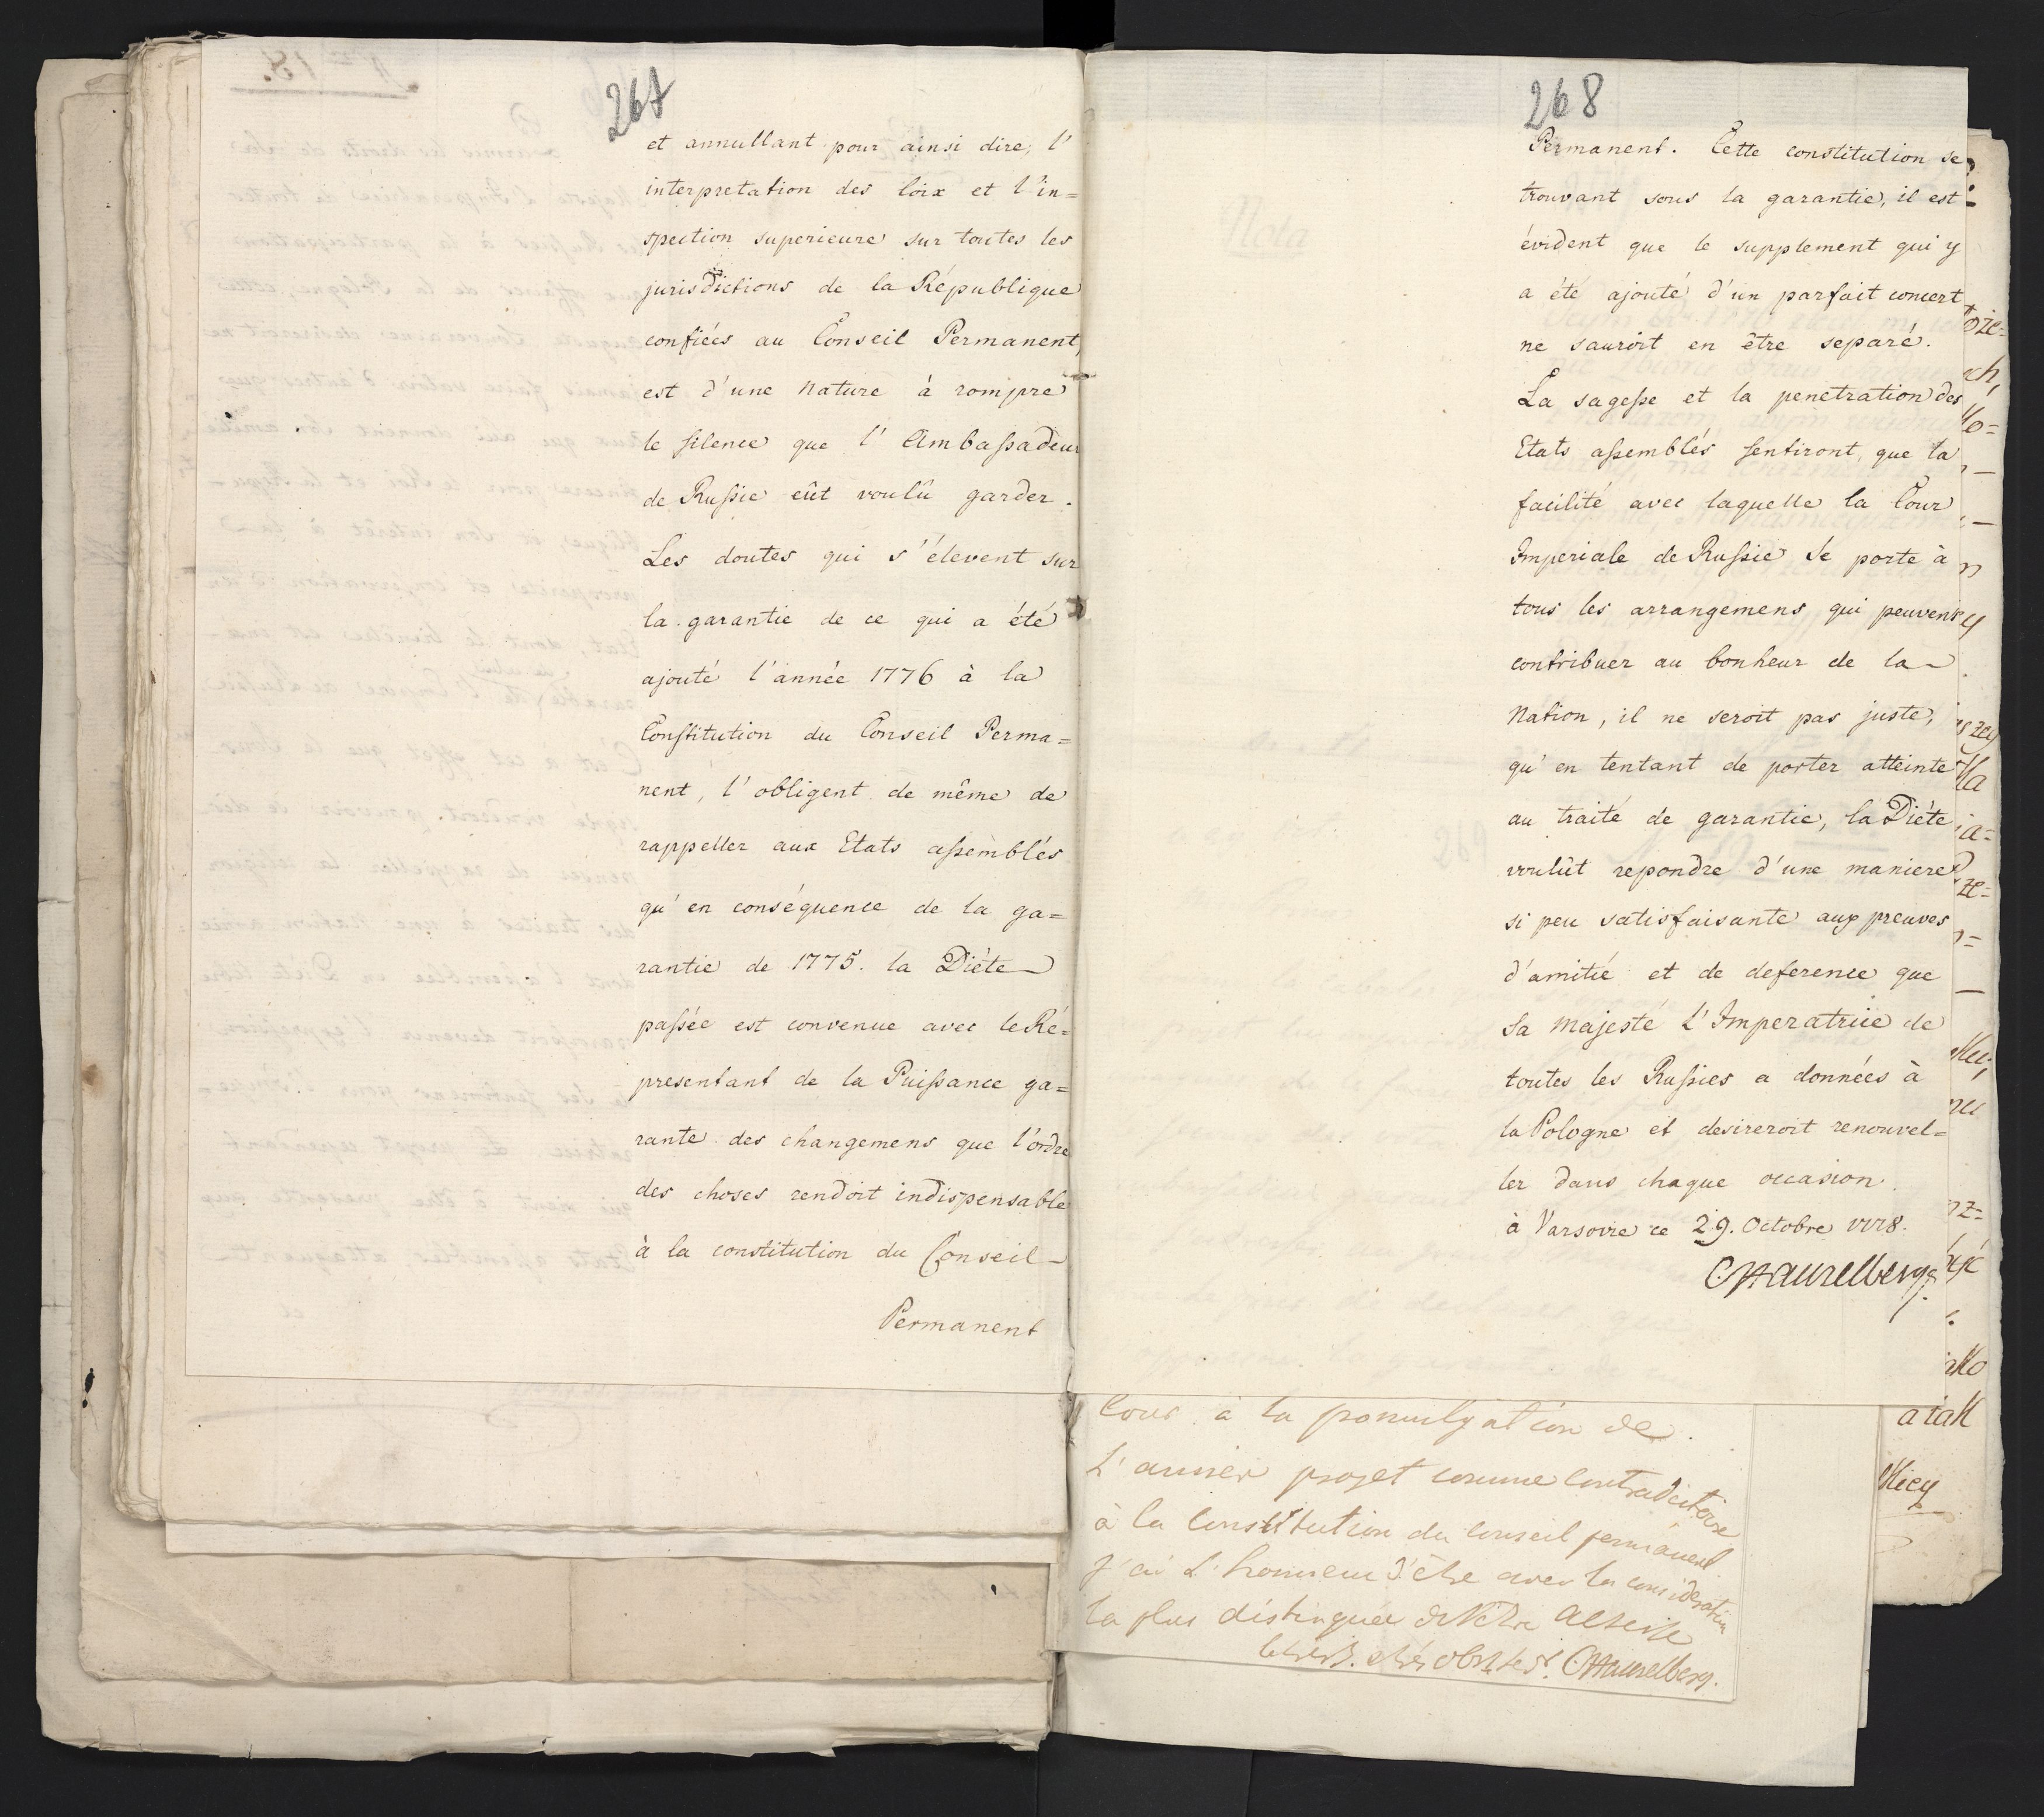 267
et annullant pour ainsi dire, l'
interpretation des loix et l'in=
spection superieure sur toutes les
jurisdictions de la République
confiées au Conseil Permanent,
est d'une nature à rompre
le silence que l'Ambassadeur
de Russie eût voulû garder.
Les doutes qui s'élevent sur
la garantie de ce qui a été
ajouté l'année 1776 à la
Constitution du Conseil Perma=
nent, l'obligent de même de
rappeller aux Etats assemblés
qu'en conséquence de la ga=
rantie de 1775. la Diéte
passée est convenue avec le Ré=
presentant de la Puissance ga=
rante des changemens que l'ordre
des choses rendoit indispensable
à la constitution du Conseil
Permanent
268
Permanent. Cette constitution se
trouvant sous la garantie, il est
évident que le supplement qui y
a été ajouté d'un parfait concert
ne sauroit en être separé.
La sagesse et la penetration des
Etats assemblés sentiront, que la
facilité avec laquelle la Cour
Imperiale de Russie se porte à
tous les arrangemens qui peuvent
contribuer au bonheur de la
Nation, il ne seroit pas juste,
qu'en tentant de porter atteinte
au traité de garantie, la Diéte
voulût repondre d'une maniere
si peu satisfaisante aux preuves
d'amitié et de deference que
Sa Majesté L'Imperatrice de
toutes les Russies a données à
la Pologne et desireroit renouvel=
ler dans chaque occasion.
à Varsovie ce 29. Octobre 1778.
CStackelberg
Cour à la promulgation de
L'ancien projet comme contradictoire
à la Constitution du Conseil permanent
J'ai L'honneur d'être avec la consideration
la plus distinguée de Votre Altesse
CStackelberg.